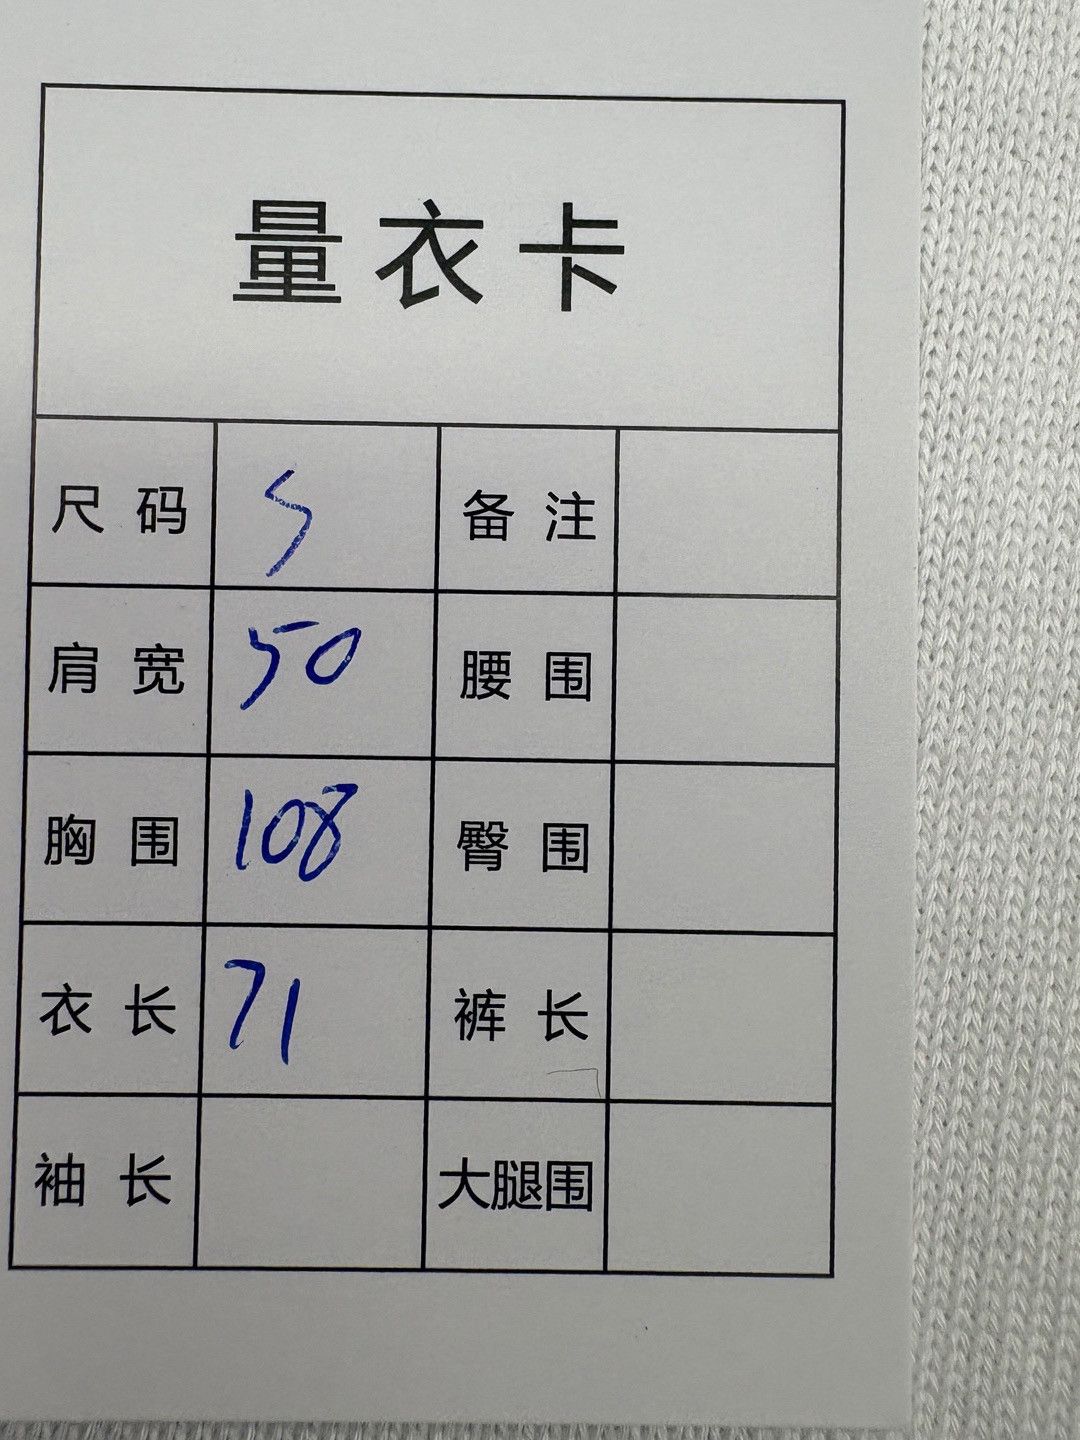 量衣卡
尺码 S 备注
肩宽 50 腰围
胸围 108 臀围
衣长 71 裤长
袖长 大腿围